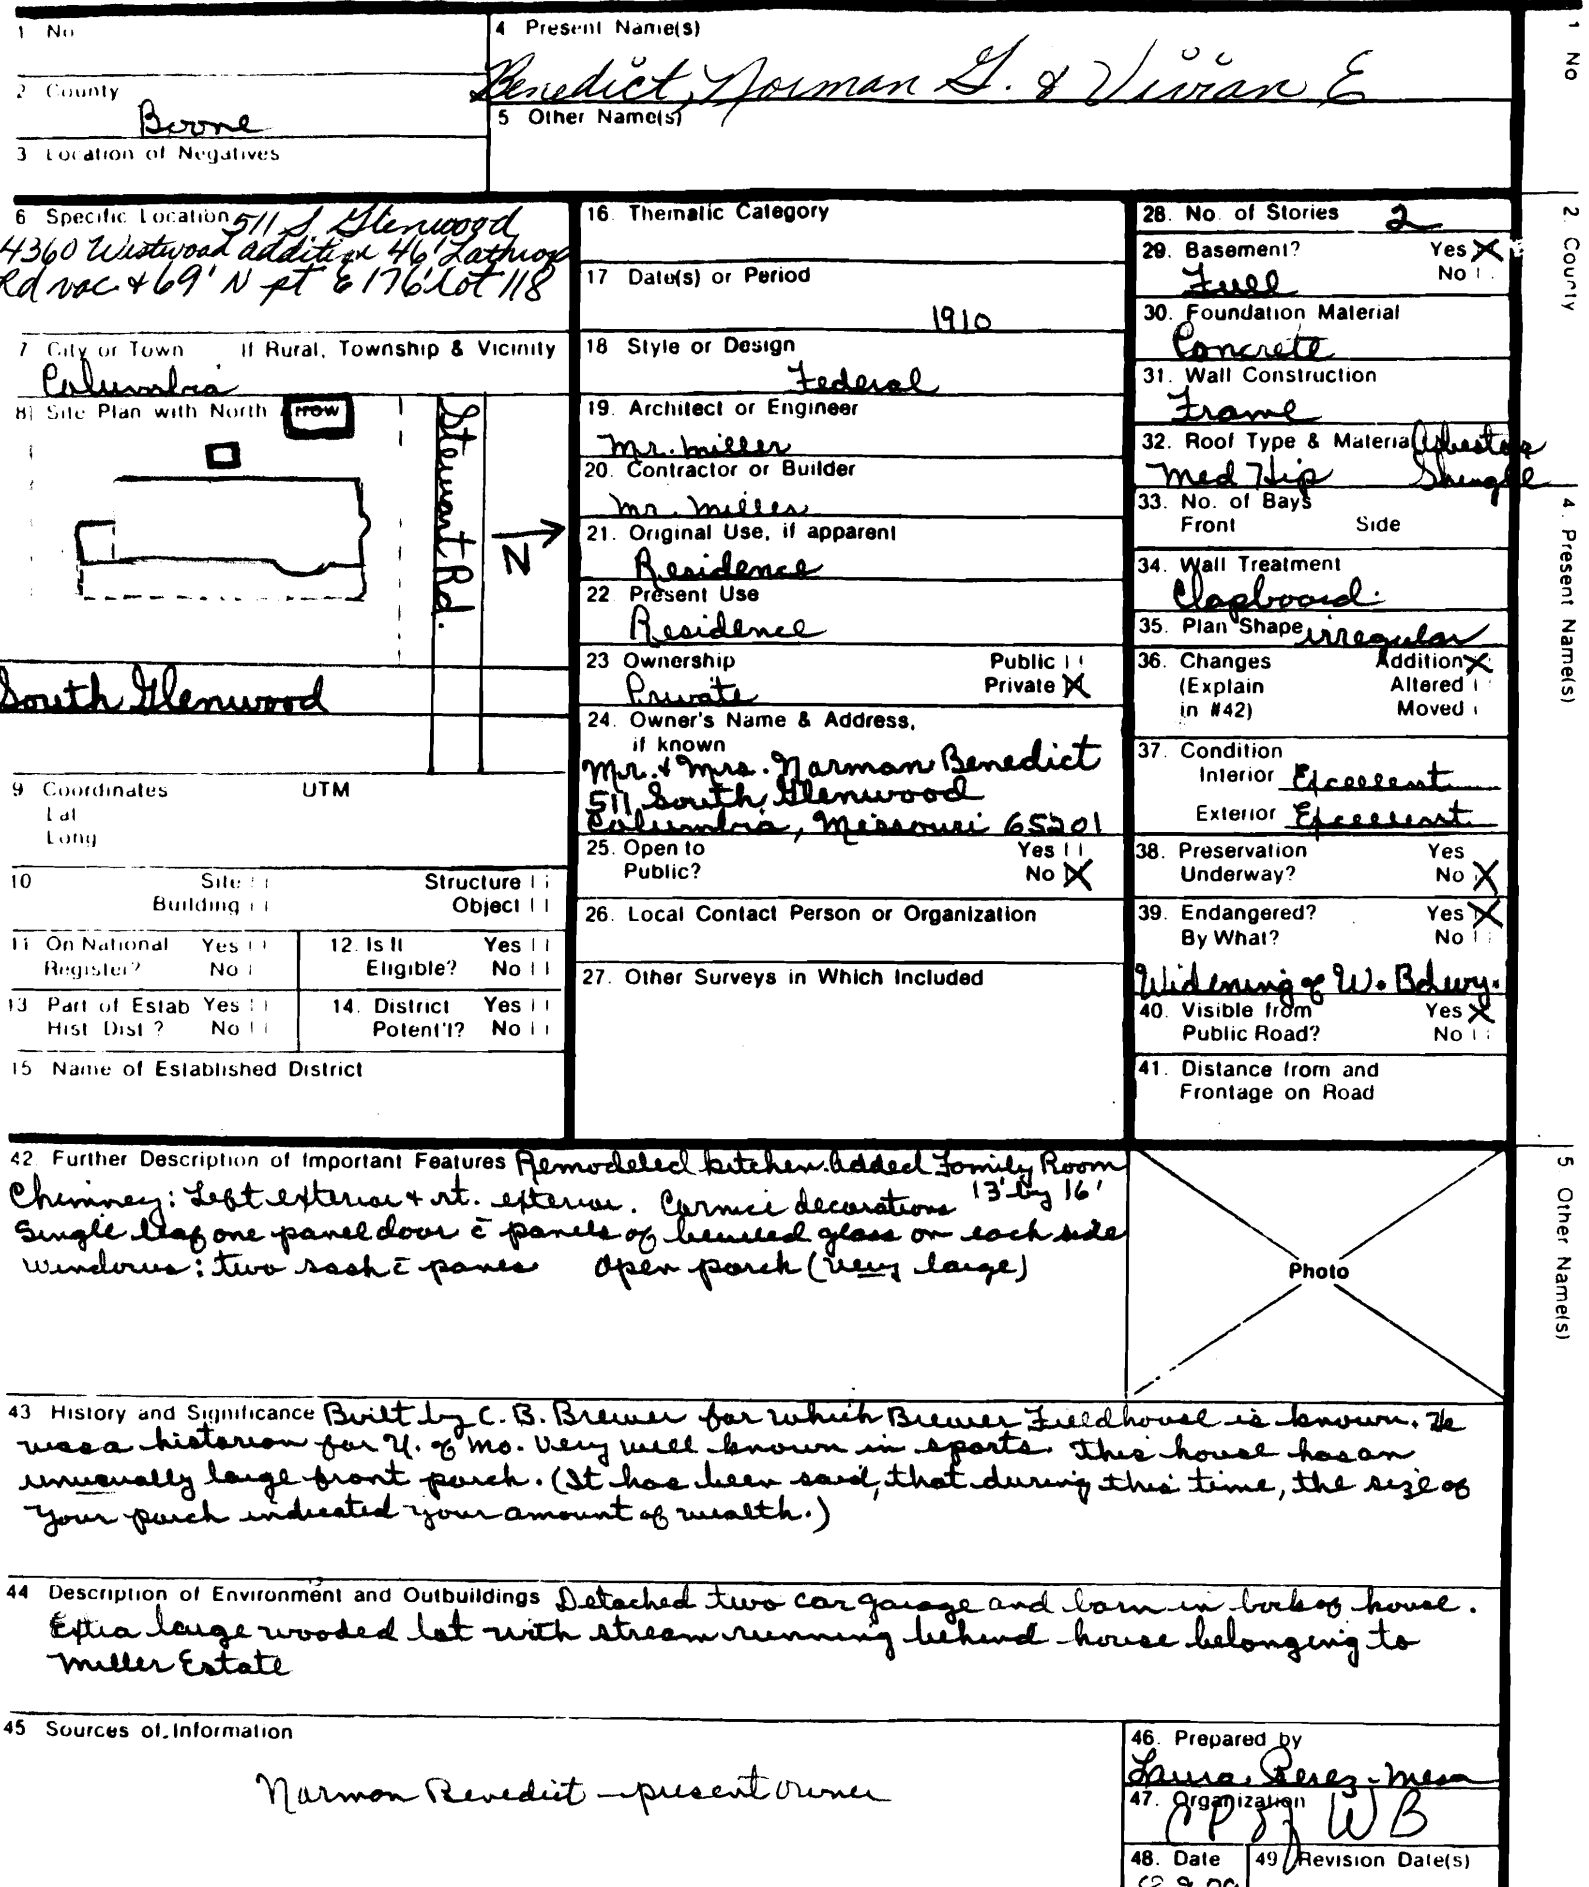 1 No
4 Present Name(s)
Benedict, Norman G. & Vivian E
2 County
Boone
5 Other Name(s)
3 Location of Negatives
6 Specific Location 511 S Glenwood
4360 Westwood addition 46' Lathrop
Rd vac & 69' N pt E 176' lot 118
7 City or Town If Rural, Township & Vicinity
Columbia
8 Site Plan with North Arrow
Stewart Rd.
N
South Glenwood
9 Coordinates UTM
Lat
Long
10 Site Structure
Building Object
11 On National Register? Yes No
12. Is It Eligible? Yes No
13 Part of Estab Hist Dist? Yes No
14. District Potent'l? Yes No
15 Name of Established District
16. Thematic Category
17 Date(s) or Period
1910
18 Style or Design
Federal
19. Architect or Engineer
Mr. Miller
20. Contractor or Builder
Mr. Miller
21. Original Use, if apparent
Residence
22 Present Use
Residence
23 Ownership Public
Private Private X
24. Owner's Name & Address,
if known
Mr. & Mrs. Norman Benedict
511 South Glenwood
Columbia, Missouri 65201
25. Open to Yes
Public? No X
26. Local Contact Person or Organization
27. Other Surveys in Which Included
28. No. of Stories 2
29. Basement? Yes X
Full No
30. Foundation Material
Concrete
31. Wall Construction
Frame
32. Roof Type & Material Asbestos
Med Hip Shingle
33. No. of Bays
Front Side
34. Wall Treatment
Clapboard.
35. Plan Shape irregular
36. Changes Addition X
(Explain Altered
in #42) Moved
37. Condition
Interior Excellent
Exterior Excellent
38. Preservation Yes
Underway? No X
39. Endangered? Yes X
By What? No
Widening of W. Bdwy.
40. Visible from Yes X
Public Road? No
41. Distance from and
Frontage on Road
42. Further Description of Important Features Remodeled kitchen. Added Family Room
13' by 16'
Chimney: Left exterior & rt. exterior. Cornice decorations
Single leaf one panel door c̄ panels of beveled glass on each side
Windows: two sash c̄ panes Open porch (very large)
Photo
43 History and Significance Built by C. B. Brewer for which Brewer Fieldhouse is known. He
was a historian for U. of Mo. Very well known in sports. This house has an
unusually large front porch. (It has been said, that during this time, the size of
your porch indicated your amount of wealth.)
44 Description of Environment and Outbuildings Detached two car garage and barn in back of house.
Extra large wooded lot with stream running behind house belonging to
Miller Estate
45 Sources of Information
Norman Benedict - present owner
46. Prepared by
Laura Perez-Mesa
47. Organization
WB
48. Date
49 Revision Date(s)
1 No
2. County
4. Present Name(s)
5 Other Name(s)